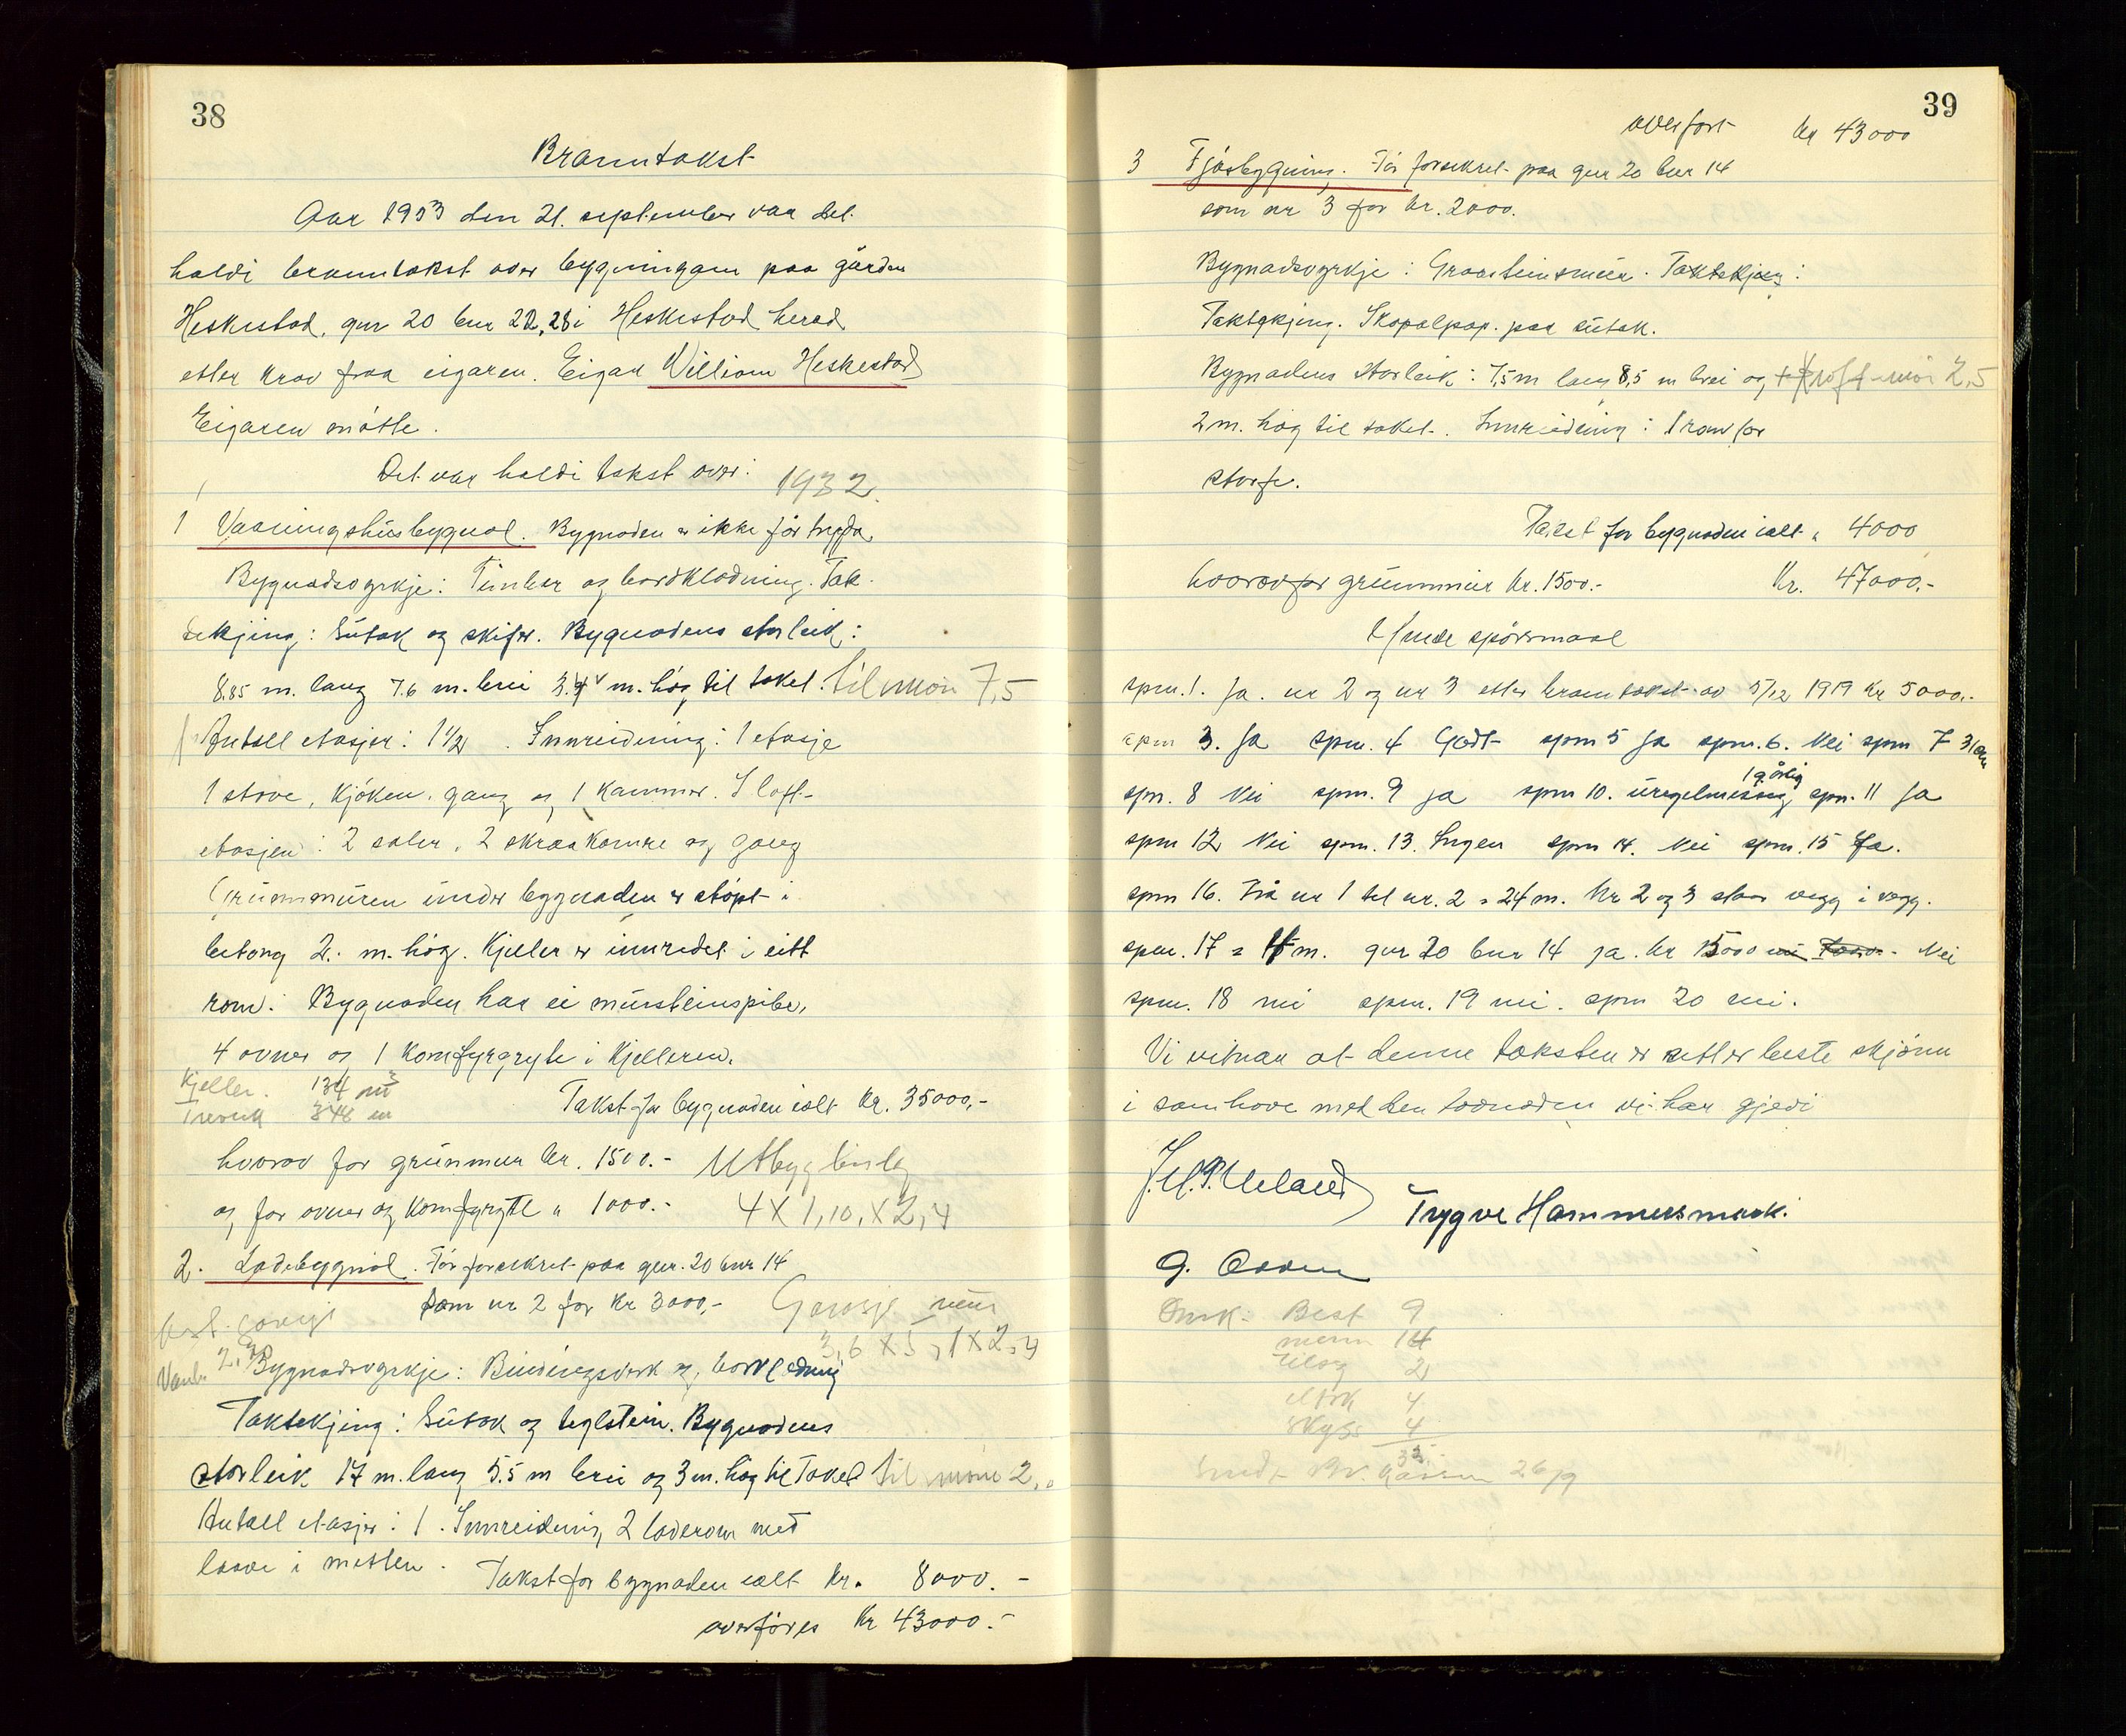 38
Branntakst
Aar 1953 den 21. september var det
haldi branntakst over bygningane paa gården
Heskestad, gnr 20 bnr 22, 28 i Heskestad herad
etter krav fraa eigaren. Eigar William Heskestad
Eigaren møtte.
Det var haldi takst over: 1932
1 Vaaningshusbygnad. Bygnaden er ikke før trygda.
Bygnadsvyrkje: Timber og bordkledning. Tak-
tekjing: Sutak og skifer. Bygnadens storleik:
8,85 m. lang 7.6 m. brei 3.4 m. høg til taket. til møn 7,5
Antall etasjer: 1 1/2. Innreidning: 1 etasje
1 stove, kjøken, gang og 1 kammer. I loft-
etasjen: 2 saler, 2 skraakamre og gang
Grunnmuren under bygnaden er støpt i
betong 2. m. høg. Kjeller er innredet i eitt
rom. Bygnaden har ei mursteinspibe,
4 ovner og 1 komfyrgryte i Kjelleren.
Kjeller. 134 m3
Treverk 348 m
Takst for bygnaden ialt Kr. 35000,-
hvorav for grunmur kr. 1500.- Utbygg
og for ovner og komfyrgryte " 1000.- 4 X 1,10, X 2,4
2. Ladebygnad. Før forsekret paa gnr. 20 bnr 14
som nr 2 for Kr 3000,- Garasje
3,6 X 5,1 X 2,4
2,20
Bygnadsvyrkje: Bindingsverk og bordkledning
Taktekjing: Sutak og teglstein. Bygnadens
storleik 17 m. lang 5.5 m brei og 3 m. høg til Taket til møne 2,0
Antall etasjer: 1. Innreidning, 2 laderom med
laave i mitten.
Takst for bygnaden ialt kr. 8000.-
overføres Kr 43000.-
39
overført kr 43000
3 Fjøsbygning. Før forsekret paa gnr 20 bnr 14
som nr 3 for kr. 2000.
Bygnadsvyrkje: Graasteinsmur. Taktekjing:
Taktekjing. Skopalpap. paa sutak.
Bygnadens storleik: 7,5 m lang 8,5 m brei og 2,5
2 m. høg til taket. Innreidning: 1 rom for
storfe.
Takst for bygnaden ialt " 4000
hvorav for grunnmur kr. 1500.- Kr. 47000.-
Ymse spørsmaal
spm. 1. Ja. nr 2 og nr 3 etter branntakst av 5/12 1919 Kr 5000.-
spm 3. Ja spm. 4 Godt spm 5 Ja spm. 6. Nei spm 7 31 cm
spm. 8 Nei spm. 9 ja spm 10. uregelmessig 1 årlig spm. 11 Ja
spm 12 Nei spm. 13. Ingen spm 14. Nei spm. 15 Ja.
spm 16. Fra nr 1 til nr. 2 = 24 m. Nr 2 og 3 staar vegg i vegg.
spm. 17 = m. gnr 20 bnr 14 ja. kr 15000 Nei
spm. 18 nei spm. 19 nei. spm 20 nei.
Vi vitnar at denne taksten er sett er beste skjønn
i samhove med den lovnaden vi har gjedi
Ueland
Trygve Hammersmark.
G.
Best 9
menn 14
tilleg 2
4
skyss 4
33
26/9